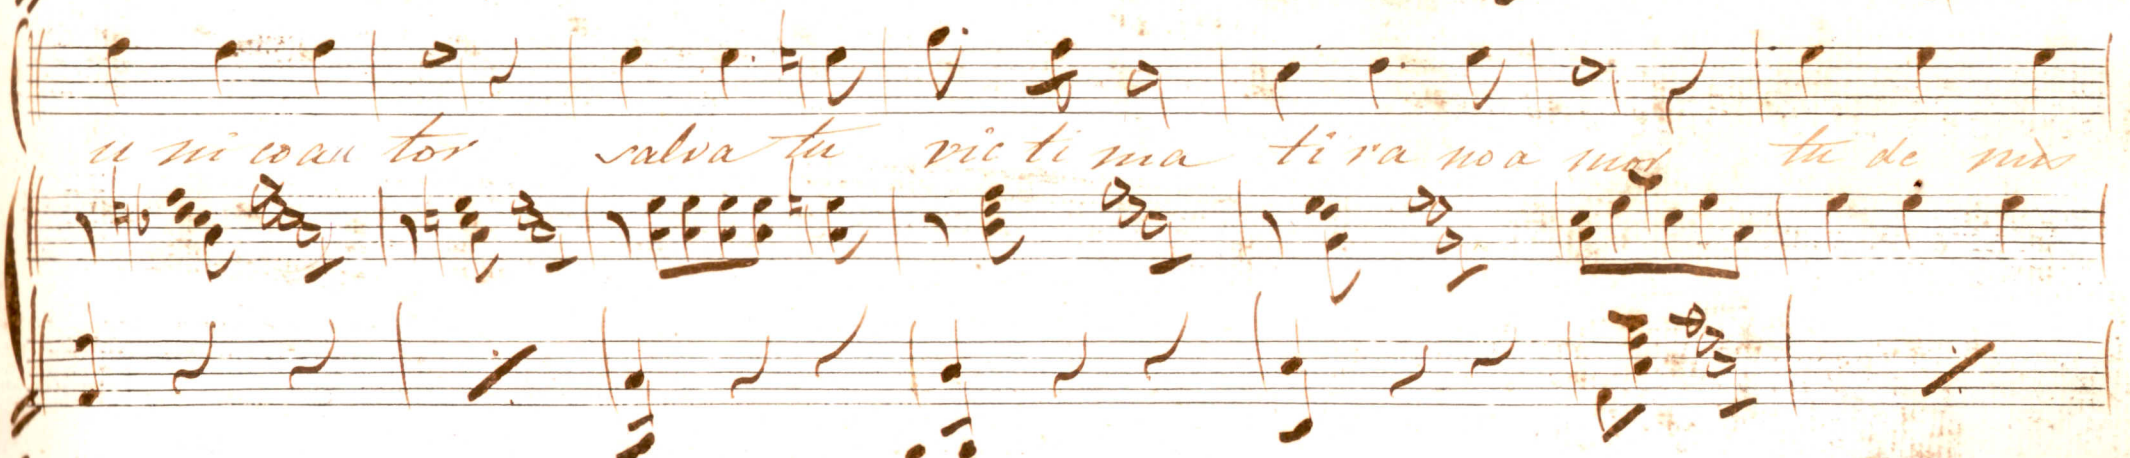 u ni co au tor salva tu vic ti ma ti ra no a mor tu de mis